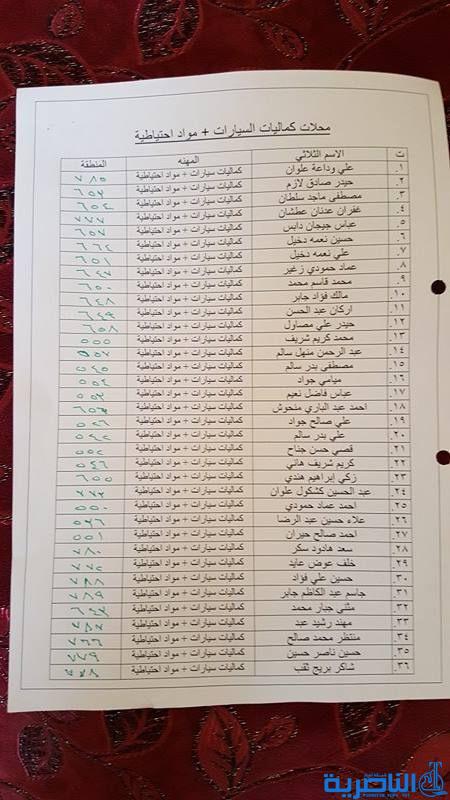 محلات كماليات السيارات + مواد احتياطية
ت الاسم الثلاثي المهنه المنطقة
١. علي وداعة علوان كماليات سيارات + مواد احتياطية ٧٨٥
٢. حيدر صادق لازم كماليات سيارات + مواد احتياطية ٦٥٢
٣. مصطفى ماجد سلطان كماليات سيارات + مواد احتياطية ٦٥٤
٤. غفران عدنان عطشان كماليات سيارات + مواد احتياطية ٧٧٧
٥. عباس جيجان دابس كماليات سيارات + مواد احتياطية ٦٥٧
٦. حسين نعمه دخيل كماليات سيارات + مواد احتياطية ٦٦٤
٧. علي نعمه دخيل كماليات سيارات + مواد احتياطية ٦٥١
٨. عماد حمودي زغير كماليات سيارات + مواد احتياطية ٦٤٧
٩. محمد قاسم محمد كماليات سيارات + مواد احتياطية ٦٥٠
١٠. مالك فؤاد جابر كماليات سيارات + مواد احتياطية ٦٤٨
١١. اركان عبد الحسن كماليات سيارات + مواد احتياطية ٦٤٩
١٢. حيدر علي مصاول كماليات سيارات + مواد احتياطية ٦٥٨
١٣. محمد كريم شريف كماليات سيارات + مواد احتياطية ٥٥٥
١٤. عبد الرحمن منهل سالم كماليات سيارات + مواد احتياطية ٥٥٧
١٥. مصطفى بدر سالم كماليات سيارات + مواد احتياطية ٥٤٥
١٦. ميامي جواد كماليات سيارات + مواد احتياطية ٥٥٤
١٧. عباس فاضل نعيم كماليات سيارات + مواد احتياطية
١٨. احمد عبد الباري منحوش كماليات سيارات + مواد احتياطية
١٩. علي صالح جواد كماليات سيارات + مواد احتياطية ٥٤٦
٢٠. علي بدر سالم كماليات سيارات + مواد احتياطية ٥٤٢
٢١. قصي حسن جناح كماليات سيارات + مواد احتياطية ٥٥٢
٢٢. كريم شريف هاني كماليات سيارات + مواد احتياطية ٥٤٦
٢٣. زكي إبراهيم هندي كماليات سيارات + مواد احتياطية ٦٥٥
٢٤. عبد الحسين كشكول علوان كماليات سيارات + مواد احتياطية
٢٥. احمد عماد حمودي كماليات سيارات + مواد احتياطية ٥٥٠
٢٦. علاء حسين عبد الرضا كماليات سيارات + مواد احتياطية
٢٧. احمد صالح حيران كماليات سيارات + مواد احتياطية ٥٥١
٢٨. سعد هادود سكر كماليات سيارات + مواد احتياطية ٧٨٠
٢٩. خلف عوض عايد كماليات سيارات + مواد احتياطية ٧٧٢
٣٠. حسين علي فؤاد كماليات سيارات + مواد احتياطية
٣١. جاسم عبد الكاظم جابر كماليات سيارات + مواد احتياطية ٧٨٩
٣٢. مثنى جبار محمد كماليات سيارات + مواد احتياطية
٣٣. مهند رشيد عبد كماليات سيارات + مواد احتياطية
٣٤. منتظر محمد صالح كماليات سيارات + مواد احتياطية
٣٥. حسين ناصر حسين كماليات سيارات + مواد احتياطية ٧٧٩
٣٦. شاكر بريج ثقب كماليات سيارات + مواد احتياطية
الناصرية